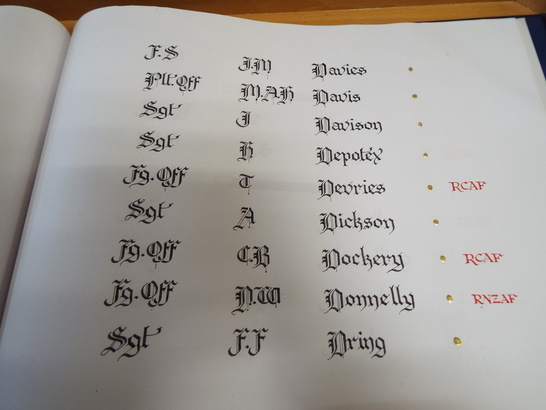 F.S J.M Davies
Plt Off M.A.H Davis
Sgt J Davison
Sgt H Depotex
Fg. Off T Devries RCAF
Sgt A Dickson
Fg. Off C.B Dockery RCAF
Fg. Off D.W Donnelly RNZAF
Sgt F.F Dring